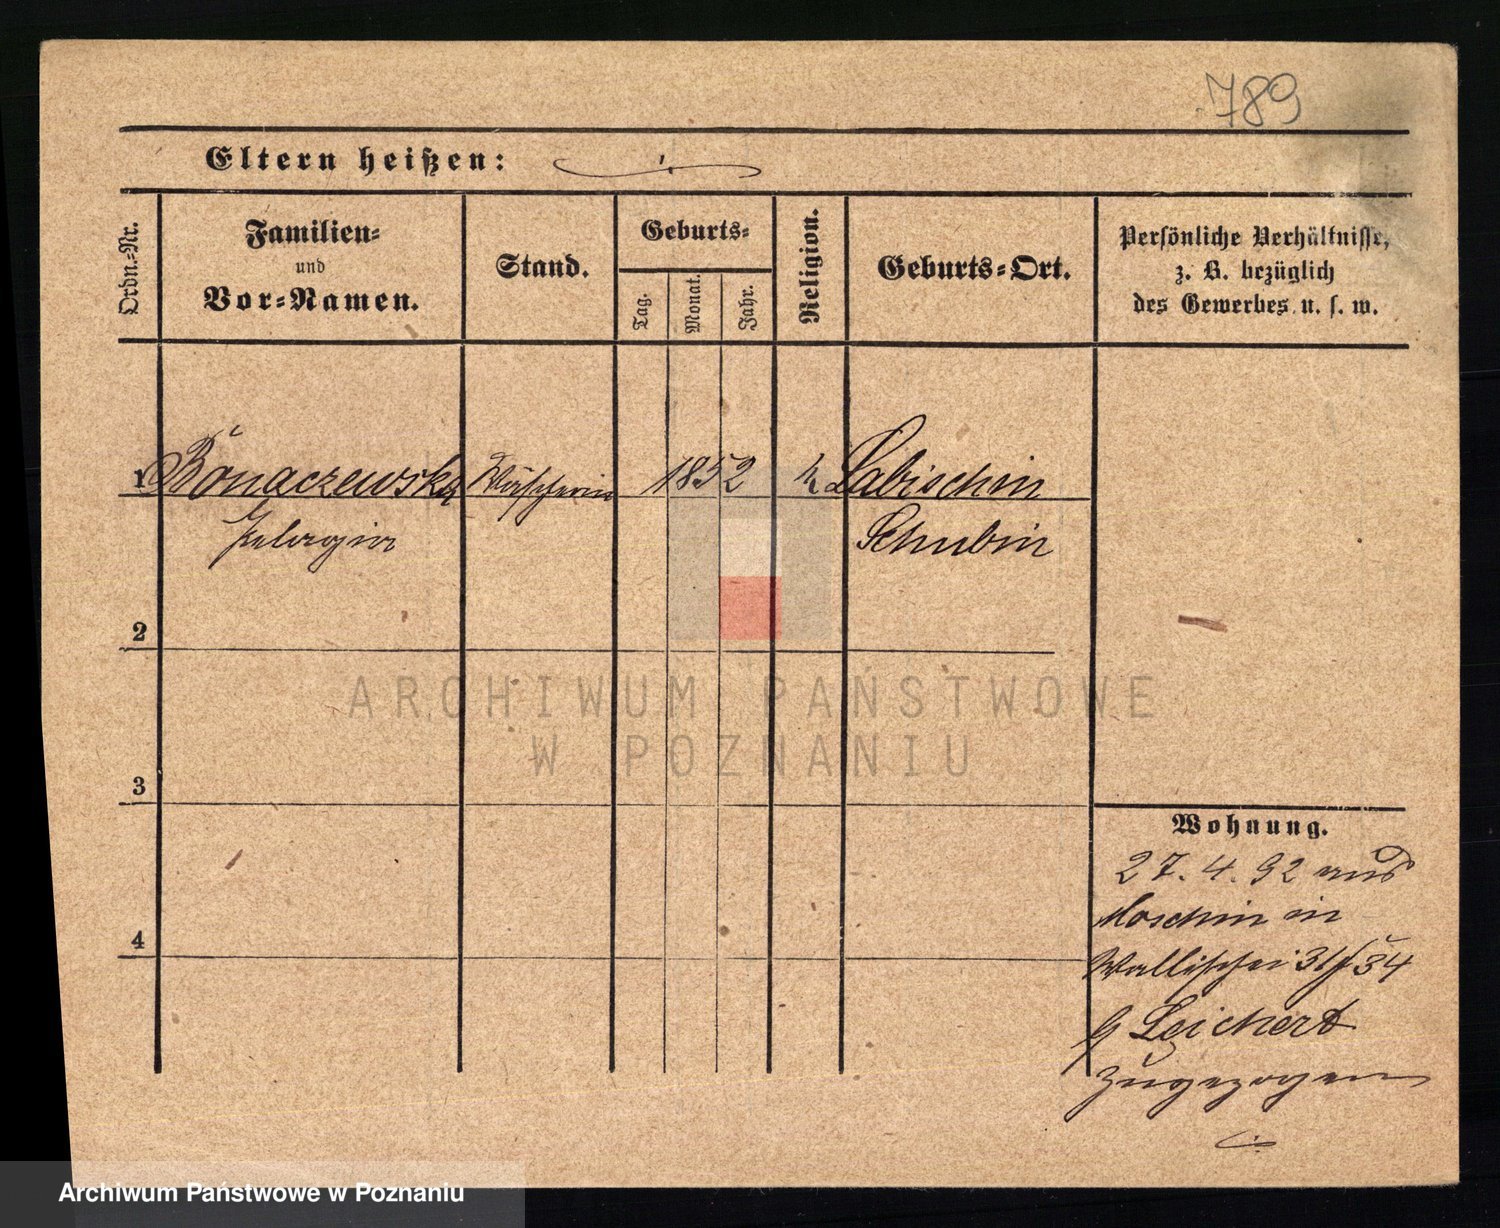 789
Eltern heißen:
Ordn.-Nr.
Familien-
und
Vor-Namen.
Stand.
Geburts-
Tag.
Monat.
Jahr.
Religion.
Geburts-Ort.
Persönliche Verhältnisse,
z. B. bezüglich
des Gewerbes u. s. w.
1 Bonaczewska Wäscherin 1852 k Labischin
Pelagia Schubin
2
3
4
Wohnung.
27. 4. 92 aus
Moschin in
Wallischei 34
Leichert
zugezogen
ARCHIWUM PAŃSTWOWE
W POZNANIU
Archiwum Państwowe w Poznaniu